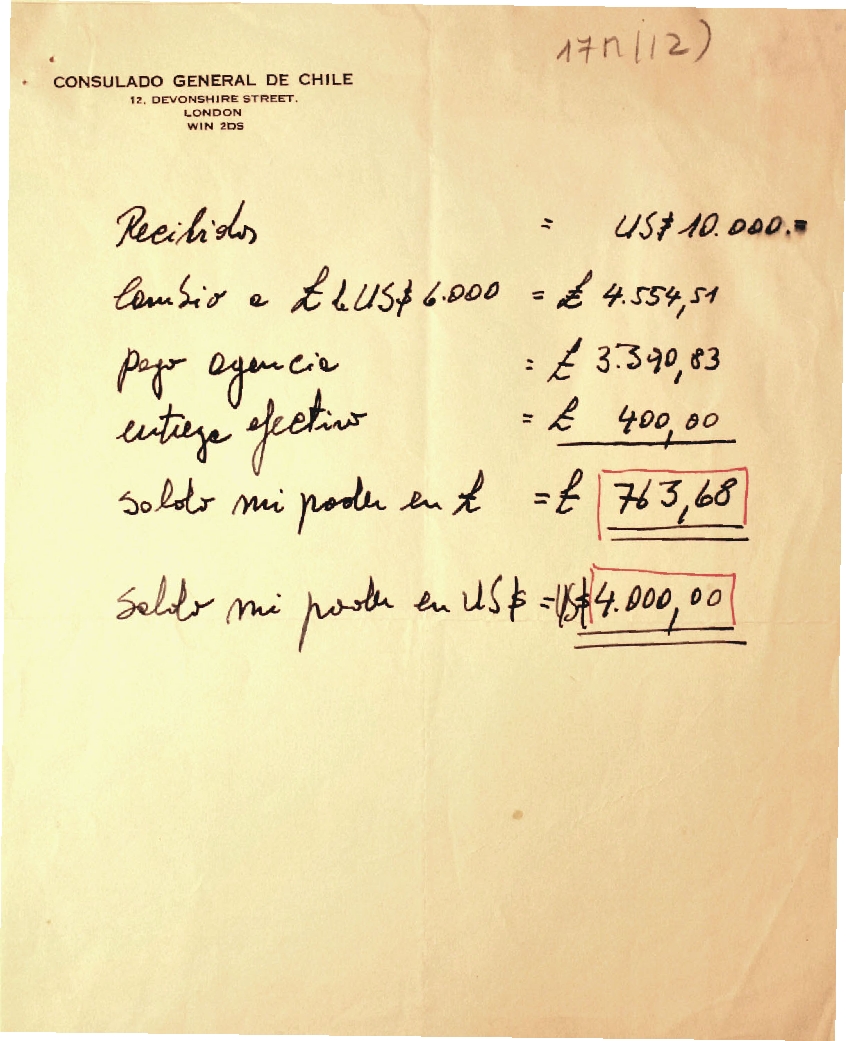 17n(12)
CONSULADO GENERAL DE CHILE
12, DEVONSHIRE STREET.
LONDON
WIN 2DS
Recibidos = US$ 10.000.=
Cambio a £ de US$ 6.000 = £ 4.554,51
pago agencia = £ 3.390,83
entrega efectivo = £ 400,00
Saldo mi poder en £ = £ 763,68
Saldo mi poder en US$ = US$ 4.000,00